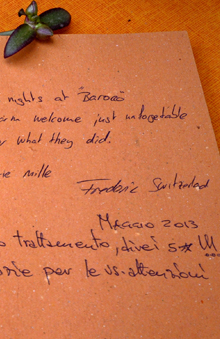 nights at "Barocco"
welcome just unforgetable
what they did.
mille
Frederic Switzerland
MAGGIO 2013
trattamento, direi 5*
per le vs. attenzioni